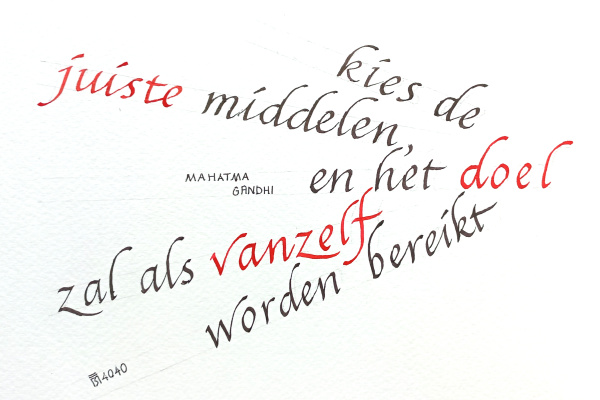 kies de
juiste middelen,
en het doel
zal als vanzelf
worden bereikt
MAHATMA
GANDHI
4040